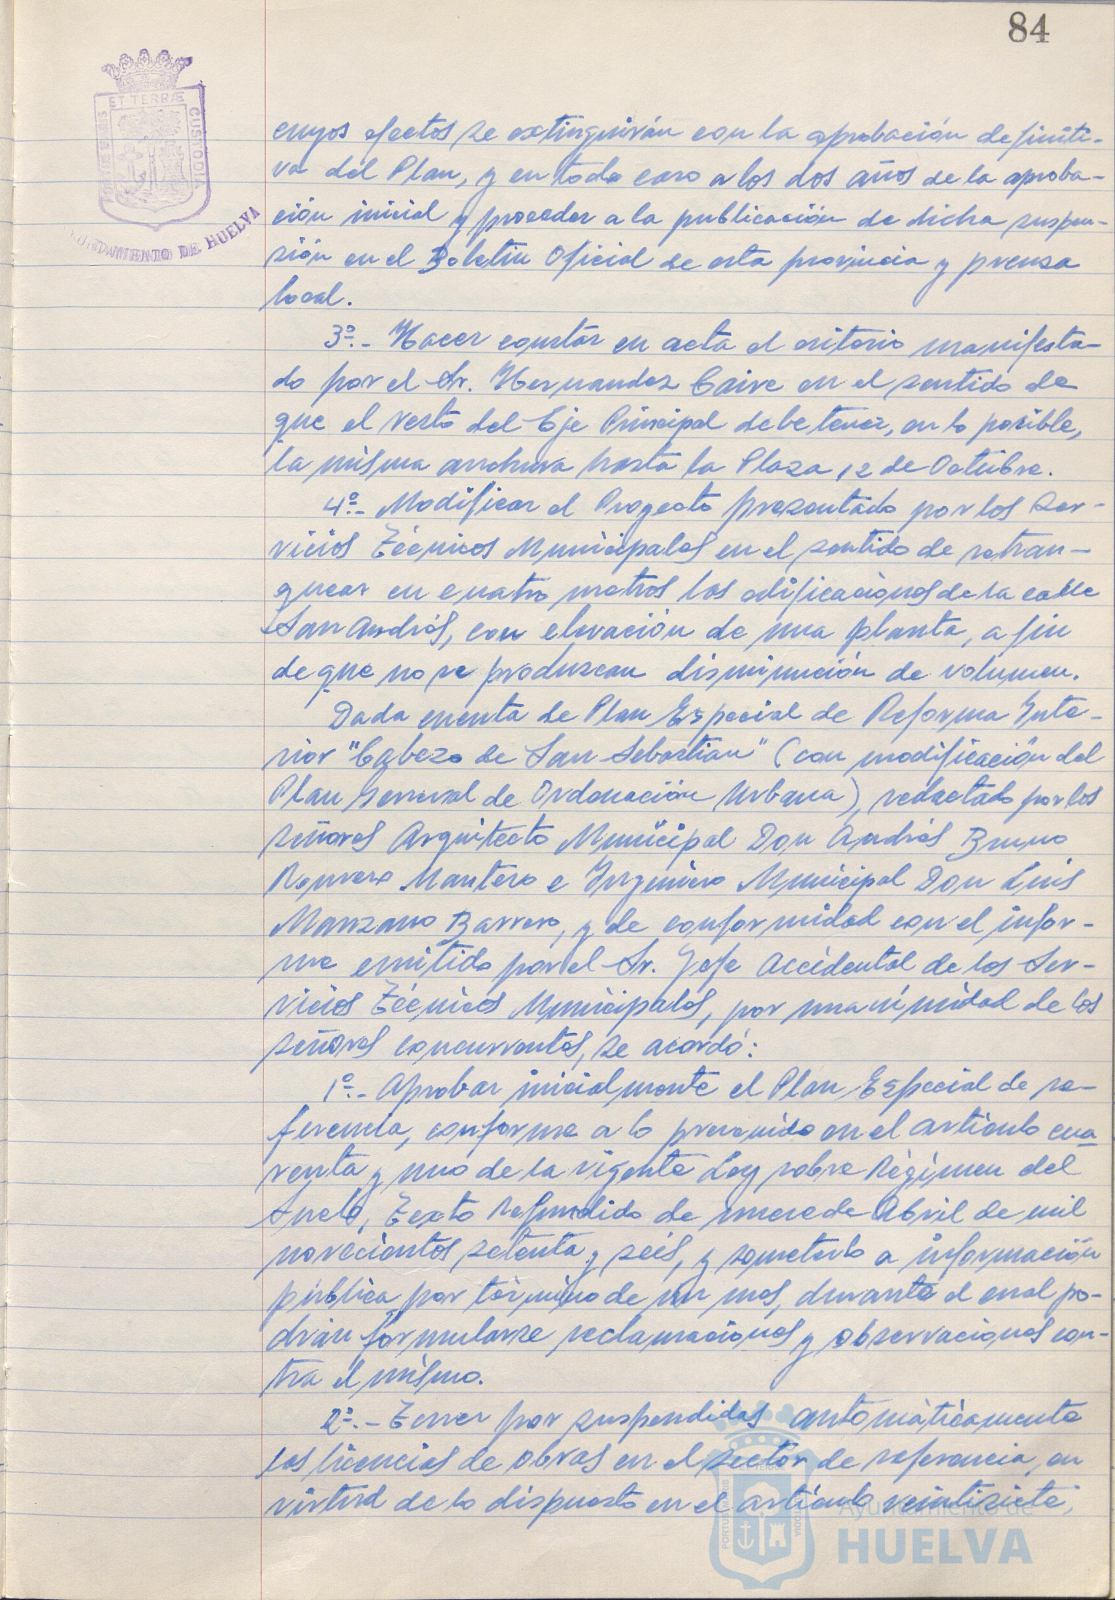 84
ET TERRÆ
CUSTODIA
AYUNTAMIENTO DE HUELVA
cuyos efectos se extinguirán con la aprobación definiti-
va del Plan, y en todo caso a los dos años de la aproba-
ción inicial y proceder a la publicación de dicha suspen-
sión en el Boletín Oficial de esta provincia y prensa
local.
3º.- Hacer constar en acta el criterio manifesta-
do por el Sr. Hernandez Caire en el sentido de
que el resto del Eje Principal debe tener, en lo posible,
la misma anchura hasta la Plaza 12 de Octubre.
4º.- Modificar el Proyecto presentado por los Ser-
vicios Técnicos Municipales en el sentido de retran-
quear en cuatro metros las edificaciones de la calle
San Andrés, con elevación de una planta, a fin
de que no se produzcan disminución de volumen.
Dada cuenta de Plan Especial de Reforma Inte-
rior "Cabezo de San Sebastian" (con modificación del
Plan General de Ordenación Urbana), redactado por los
señores Arquitecto Municipal Don Andrés Bruno
Romero Mantero e Ingeniero Municipal Don Luis
Manzano Barrero, y de conformidad con el infor-
me emitido por el Sr. Jefe Accidental de los Ser-
vicios Técnicos Municipales, por unanimidad de los
señores concurrentes, se acordó:
1º.- Aprobar inicialmente el Plan Especial de re-
ferencia, conforme a lo prevenido en el artículo cua
renta y uno de la vigente Ley sobre Régimen del
Suelo, Texto Refundido de nueve de Abril de mil
novecientos setenta y seis, y someterlo a información
pública por término de un mes, durante el cual po-
drán formularse reclamaciones y observaciones con-
tra el mismo.
2º.- Tener por suspendidas automáticamente
las licencias de obras en el sector de referencia, en
virtud de lo dispuesto en el artículo veintisiete,
Ayuntamiento de
HUELVA